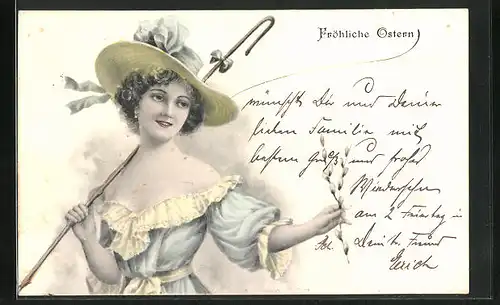 Fröhliche Ostern
wünscht Dir und Deiner
lieben Familie mit
besten Gruß und frohes
Wiedersehn
am 2 Feiertag
Dein tr. Freund
Erich